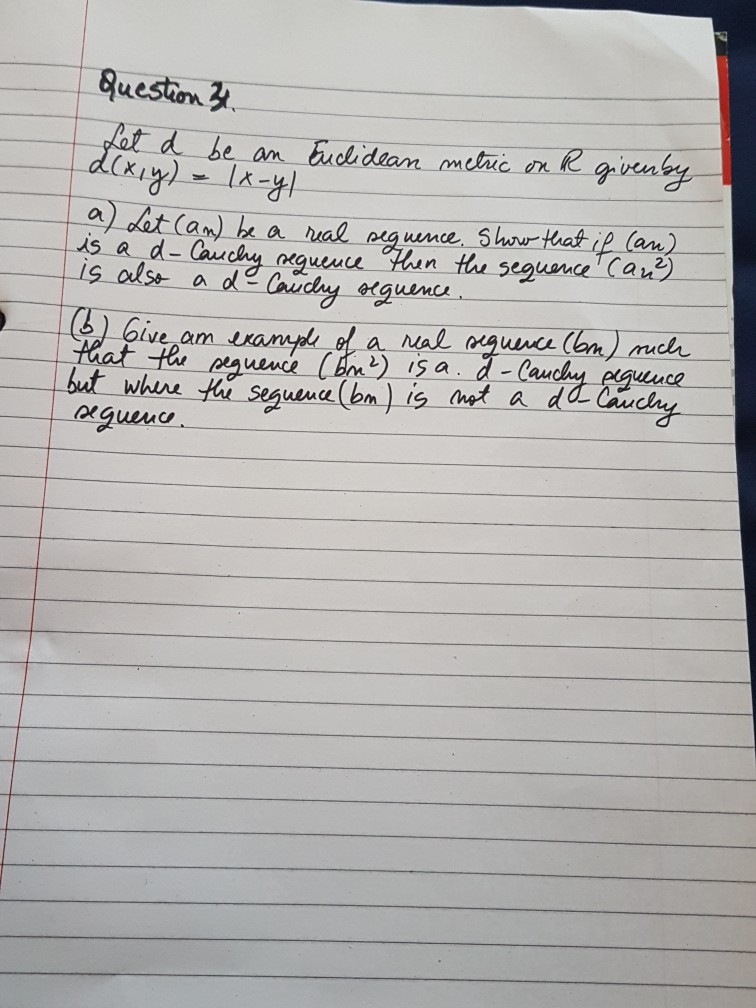 Question 4.
Let d be an Euclidean metric on R given by
d(x,y) = |x-y|
a) Let (an) be a real sequence. Show that if (an)
is a d-Cauchy sequence then the sequence (an²)
is also a d-Cauchy sequence.
(b) Give am example of a real sequence (bn) such
that the sequence (bn²) is a. d-Cauchy sequence
but where the sequence (bn) is not a d-Cauchy
sequence.